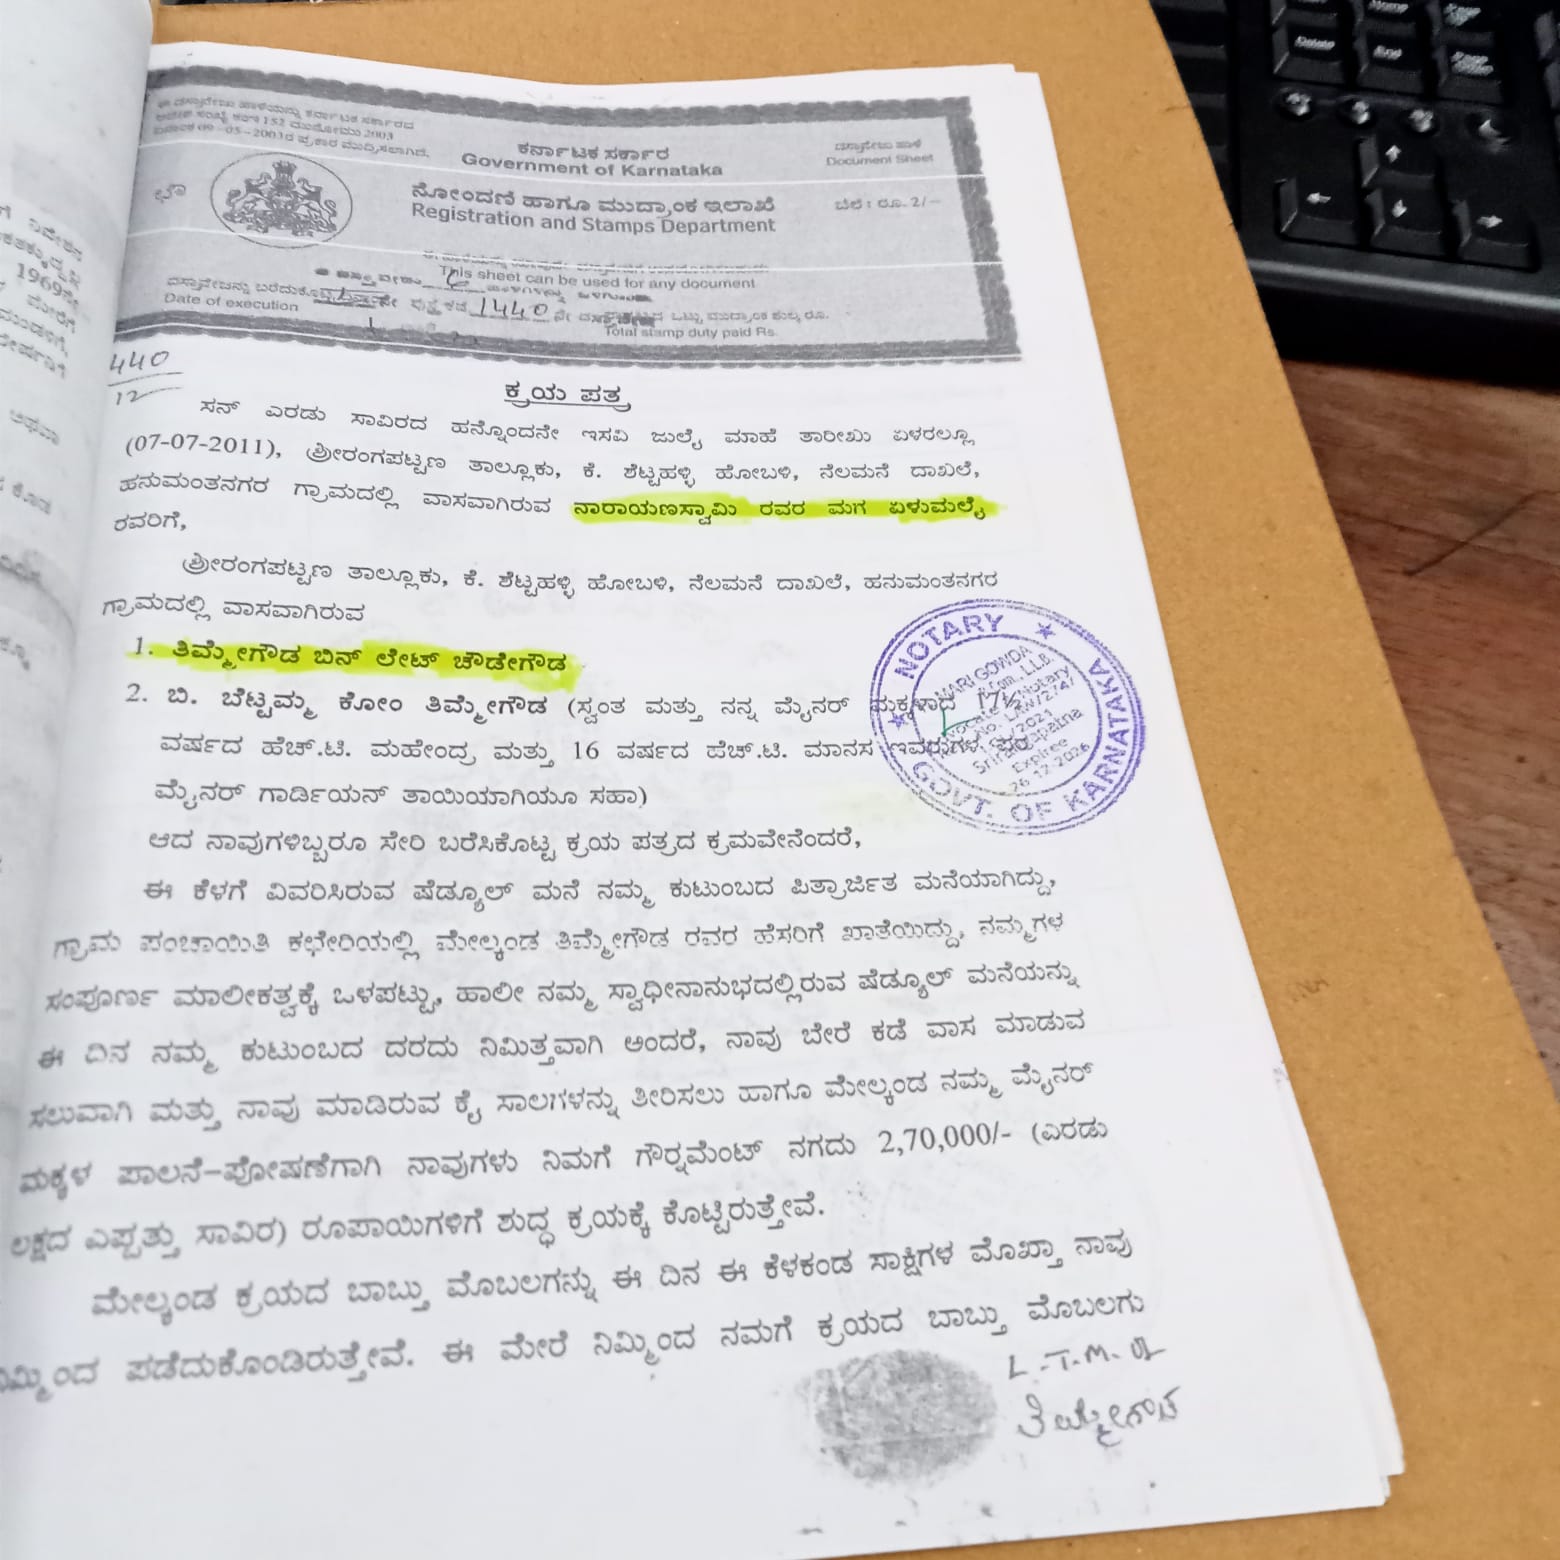 ಈ ದಸ್ತಾವೇಜು ಹಾಳೆಯನ್ನು ಕರ್ನಾಟಕ ಸರ್ಕಾರದ
ಆದೇಶ ಸಂಖ್ಯೆ 152 ಮುನೋಮು 2003
ದಿನಾಂಕ 09-05-2003ರ ಪ್ರಕಾರ ಮುದ್ರಿಸಲಾಗಿದೆ.
ಕರ್ನಾಟಕ ಸರ್ಕಾರ
Government of Karnataka
ದಸ್ತಾವೇಜು ಹಾಳೆ
Document Sheet
ನೋಂದಣಿ ಹಾಗೂ ಮುದ್ರಾಂಕ ಇಲಾಖೆ
Registration and Stamps Department
ಬೆಲೆ : ರೂ. 2/-
This sheet can be used for any document
ದಸ್ತಾವೇಜನ್ನು ಬರೆದುಕೊಟ್ಟ ನೇ ಪುಸ್ತಕದ 1440 ನೇ ಒಟ್ಟು ಮುದ್ರಾಂಕ ಶುಲ್ಕ ರೂ.
Date of execution
Total stamp duty paid Rs.
440
12
ಕ್ರಯ ಪತ್ರ
ಸನ್ ಎರಡು ಸಾವಿರದ ಹನ್ನೊಂದನೇ ಇಸವಿ ಜುಲೈ ಮಾಹೆ ತಾರೀಖು ಏಳರಲ್ಲೂ
(07-07-2011), ಶ್ರೀರಂಗಪಟ್ಟಣ ತಾಲ್ಲೂಕು, ಕೆ. ಶೆಟ್ಟಹಳ್ಳಿ ಹೋಬಳಿ, ನೆಲಮನೆ ದಾಖಲೆ,
ಹನುಮಂತನಗರ ಗ್ರಾಮದಲ್ಲಿ ವಾಸವಾಗಿರುವ ನಾರಾಯಣಸ್ವಾಮಿ ರವರ ಮಗ ಏಳುಮಲೈ
ರವರಿಗೆ,
ಶ್ರೀರಂಗಪಟ್ಟಣ ತಾಲ್ಲೂಕು, ಕೆ. ಶೆಟ್ಟಹಳ್ಳಿ ಹೋಬಳಿ, ನೆಲಮನೆ ದಾಖಲೆ, ಹನುಮಂತನಗರ
ಗ್ರಾಮದಲ್ಲಿ ವಾಸವಾಗಿರುವ
1. ತಿಮ್ಮೇಗೌಡ ಬಿನ್ ಲೇಟ್ ಚೌಡೇಗೌಡ
2. ಬಿ. ಬೆಟ್ಟಮ್ಮ ಕೋಂ ತಿಮ್ಮೇಗೌಡ (ಸ್ವಂತ ಮತ್ತು ನನ್ನ ಮೈನರ್ ಮಕ್ಕಳಾದ 17½
ವರ್ಷದ ಹೆಚ್.ಟಿ. ಮಹೇಂದ್ರ ಮತ್ತು 16 ವರ್ಷದ ಹೆಚ್.ಟಿ. ಮಾನಸ ಇವರುಗಳ ಪರ
ಮೈನರ್ ಗಾರ್ಡಿಯನ್ ತಾಯಿಯಾಗಿಯೂ ಸಹಾ)
NOTARY
MARI GOWDA
B.Com., LL.B.
Advocate & Notary
2021
Srirangapatna
Expiree
26-12-2026
GOVT. OF KARNATAKA
ಆದ ನಾವುಗಳಿಬ್ಬರೂ ಸೇರಿ ಬರೆಸಿಕೊಟ್ಟ ಕ್ರಯ ಪತ್ರದ ಕ್ರಮವೇನೆಂದರೆ,
ಈ ಕೆಳಗೆ ವಿವರಿಸಿರುವ ಷೆಡ್ಯೂಲ್ ಮನೆ ನಮ್ಮ ಕುಟುಂಬದ ಪಿತ್ರಾರ್ಜಿತ ಮನೆಯಾಗಿದ್ದು,
ಗ್ರಾಮ ಪಂಚಾಯಿತಿ ಕಛೇರಿಯಲ್ಲಿ ಮೇಲ್ಕಂಡ ತಿಮ್ಮೇಗೌಡ ರವರ ಹೆಸರಿಗೆ ಖಾತೆಯಿದ್ದು, ನಮ್ಮಗಳ
ಸಂಪೂರ್ಣ ಮಾಲೀಕತ್ವಕ್ಕೆ ಒಳಪಟ್ಟು, ಹಾಲೀ ನಮ್ಮ ಸ್ವಾಧೀನಾನುಭದಲ್ಲಿರುವ ಷೆಡ್ಯೂಲ್ ಮನೆಯನ್ನು
ಈ ದಿನ ನಮ್ಮ ಕುಟುಂಬದ ದರದು ನಿಮಿತ್ತವಾಗಿ ಅಂದರೆ, ನಾವು ಬೇರೆ ಕಡೆ ವಾಸ ಮಾಡುವ
ಸಲುವಾಗಿ ಮತ್ತು ನಾವು ಮಾಡಿರುವ ಕೈ ಸಾಲಗಳನ್ನು ತೀರಿಸಲು ಹಾಗೂ ಮೇಲ್ಕಂಡ ನಮ್ಮ ಮೈನರ್
ಮಕ್ಕಳ ಪಾಲನೆ-ಪೋಷಣೆಗಾಗಿ ನಾವುಗಳು ನಿಮಗೆ ಗೌರ್ನಮೆಂಟ್ ನಗದು 2,70,000/- (ಎರಡು
ಲಕ್ಷದ ಎಪ್ಪತ್ತು ಸಾವಿರ) ರೂಪಾಯಿಗಳಿಗೆ ಶುದ್ಧ ಕ್ರಯಕ್ಕೆ ಕೊಟ್ಟಿರುತ್ತೇವೆ.
ಮೇಲ್ಕಂಡ ಕ್ರಯದ ಬಾಬ್ತು ಮೊಬಲಗನ್ನು ಈ ದಿನ ಈ ಕೆಳಕಂಡ ಸಾಕ್ಷಿಗಳ ಮೊಖ್ತಾ ನಾವು
ನಿಮ್ಮಿಂದ ಪಡೆದುಕೊಂಡಿರುತ್ತೇವೆ. ಈ ಮೇರೆ ನಿಮ್ಮಿಂದ ನಮಗೆ ಕ್ರಯದ ಬಾಬ್ತು ಮೊಬಲಗು
L.T.M. of
ತಿಮ್ಮೇಗೌಡ
1969ನೇ
Delete
Home
End